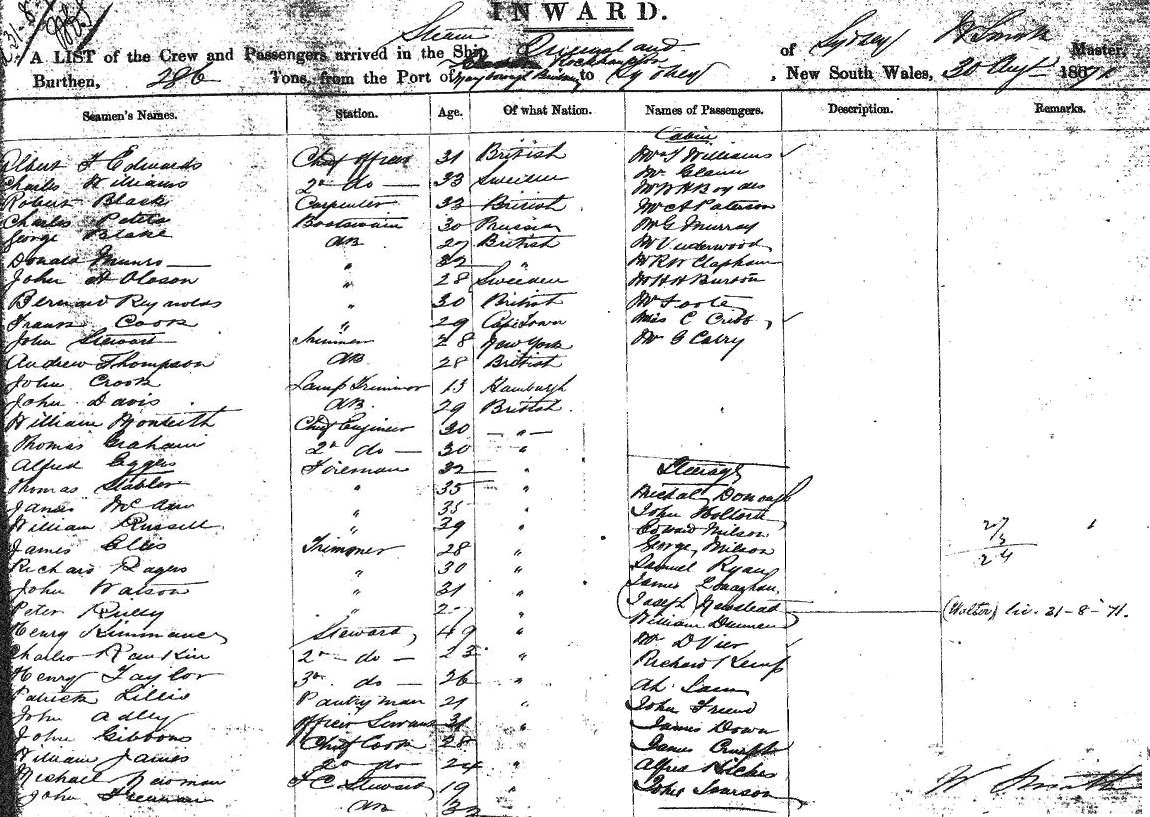 INWARD.
31-8-
Steam
A LIST of the Crew and Passengers arrived in the Ship Queensland of Sydney W Smith Master.
Rockhampton
Burthen, 286 Tons, from the Port of Maryborough to Sydney, New South Wales, 30 Augt 1871
Seamen's Names. Station. Age. Of what Nation. Names of Passengers. Description. Remarks.
Cabin
Albert F Edwards Chief Officer 31 British Mr T Williams
Charles Williams 2nd do 33 Sweden Mr
Robert Black Carpenter 33 British Mr W H Boydes
Charles Peters Boatswain 30 Prussia Mr A Paterson
George Blake AB 27 British Mr G Murray
Donald Munro " 32 " Mr Underwood
John A Oleson " 28 Sweden Mr R W Clapham
Bernard Reynolds " 30 British Mr H H Burton
Frank Cook " 29 Cape Town Mr Foote
John Stewart 28 New York Miss C Cribb
Andrew Thompson AB 28 British Mr G Carry
John Crook Lamp Trimmer 13 Hamburgh
John Davis AB 29 British
William Monteith Chief Engineer 30 "
Thomas Graham 2nd do 30 "
Alfred Eggers Fireman 32 "
Steerage
Thomas Stabler " 35 " Michal Donough
James " 35 " John
William Russell " 29 " Edward Milson
James Ellis Trimmer 28 " George Milson
Richard Rogers " 30 " Samuel Ryan
John Watson " 31 " James
Peter Reilly " 27 " (Joseph) Newstead (Walter) liv. 31-8-71.
Henry Steward 49 " William
Charles Rankin 2nd do 23 " Mr D Vier
Henry Taylor 3rd do 26 " Richard Kemp
Patrick Lillis Pantryman 21 " Ah Sam
John Adley Officers Servant 31 " John Friend
John Gibbons Chief Cook 28 " James Down
William James 2nd do 24 " James
Michael Newman F C Steward 19 " Alfred
John Freeman AB 32 " John
27
3
24
W Smith